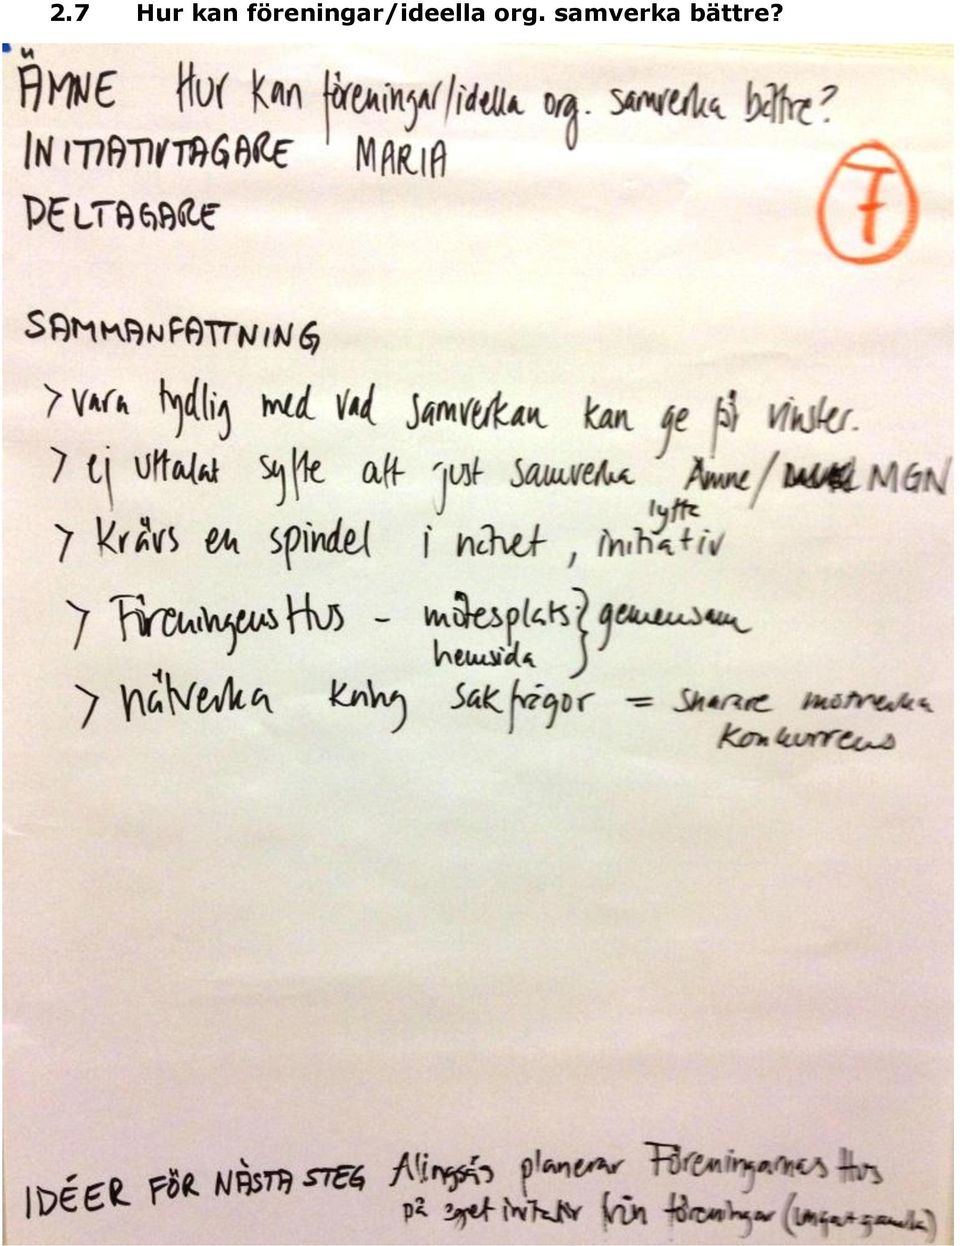 2.7 Hur kan föreningar/ideella org. samverka bättre?
ÄMNE Hur kan föreningar/idella org. samverka bättre?
INITIATIVTAGARE MARIA
7
DELTAGARE
SAMMANFATTNING
> vara tydlig med vad samverkan kan ge för vinster.
> ej uttalat syfte att just samverka Ämne/ MGN
> Krävs en spindel i nätet, lyfta initiativ
> Föreningens Hus - mötesplats } gemensam
hemsida
> nätverka kring sakfrågor = snarare motverka
konkurrens
IDÉER FÖR NÄSTA STEG Alingsås planerar Föreningarnas Hus
på eget initiativ från föreningar (unga+gamla)